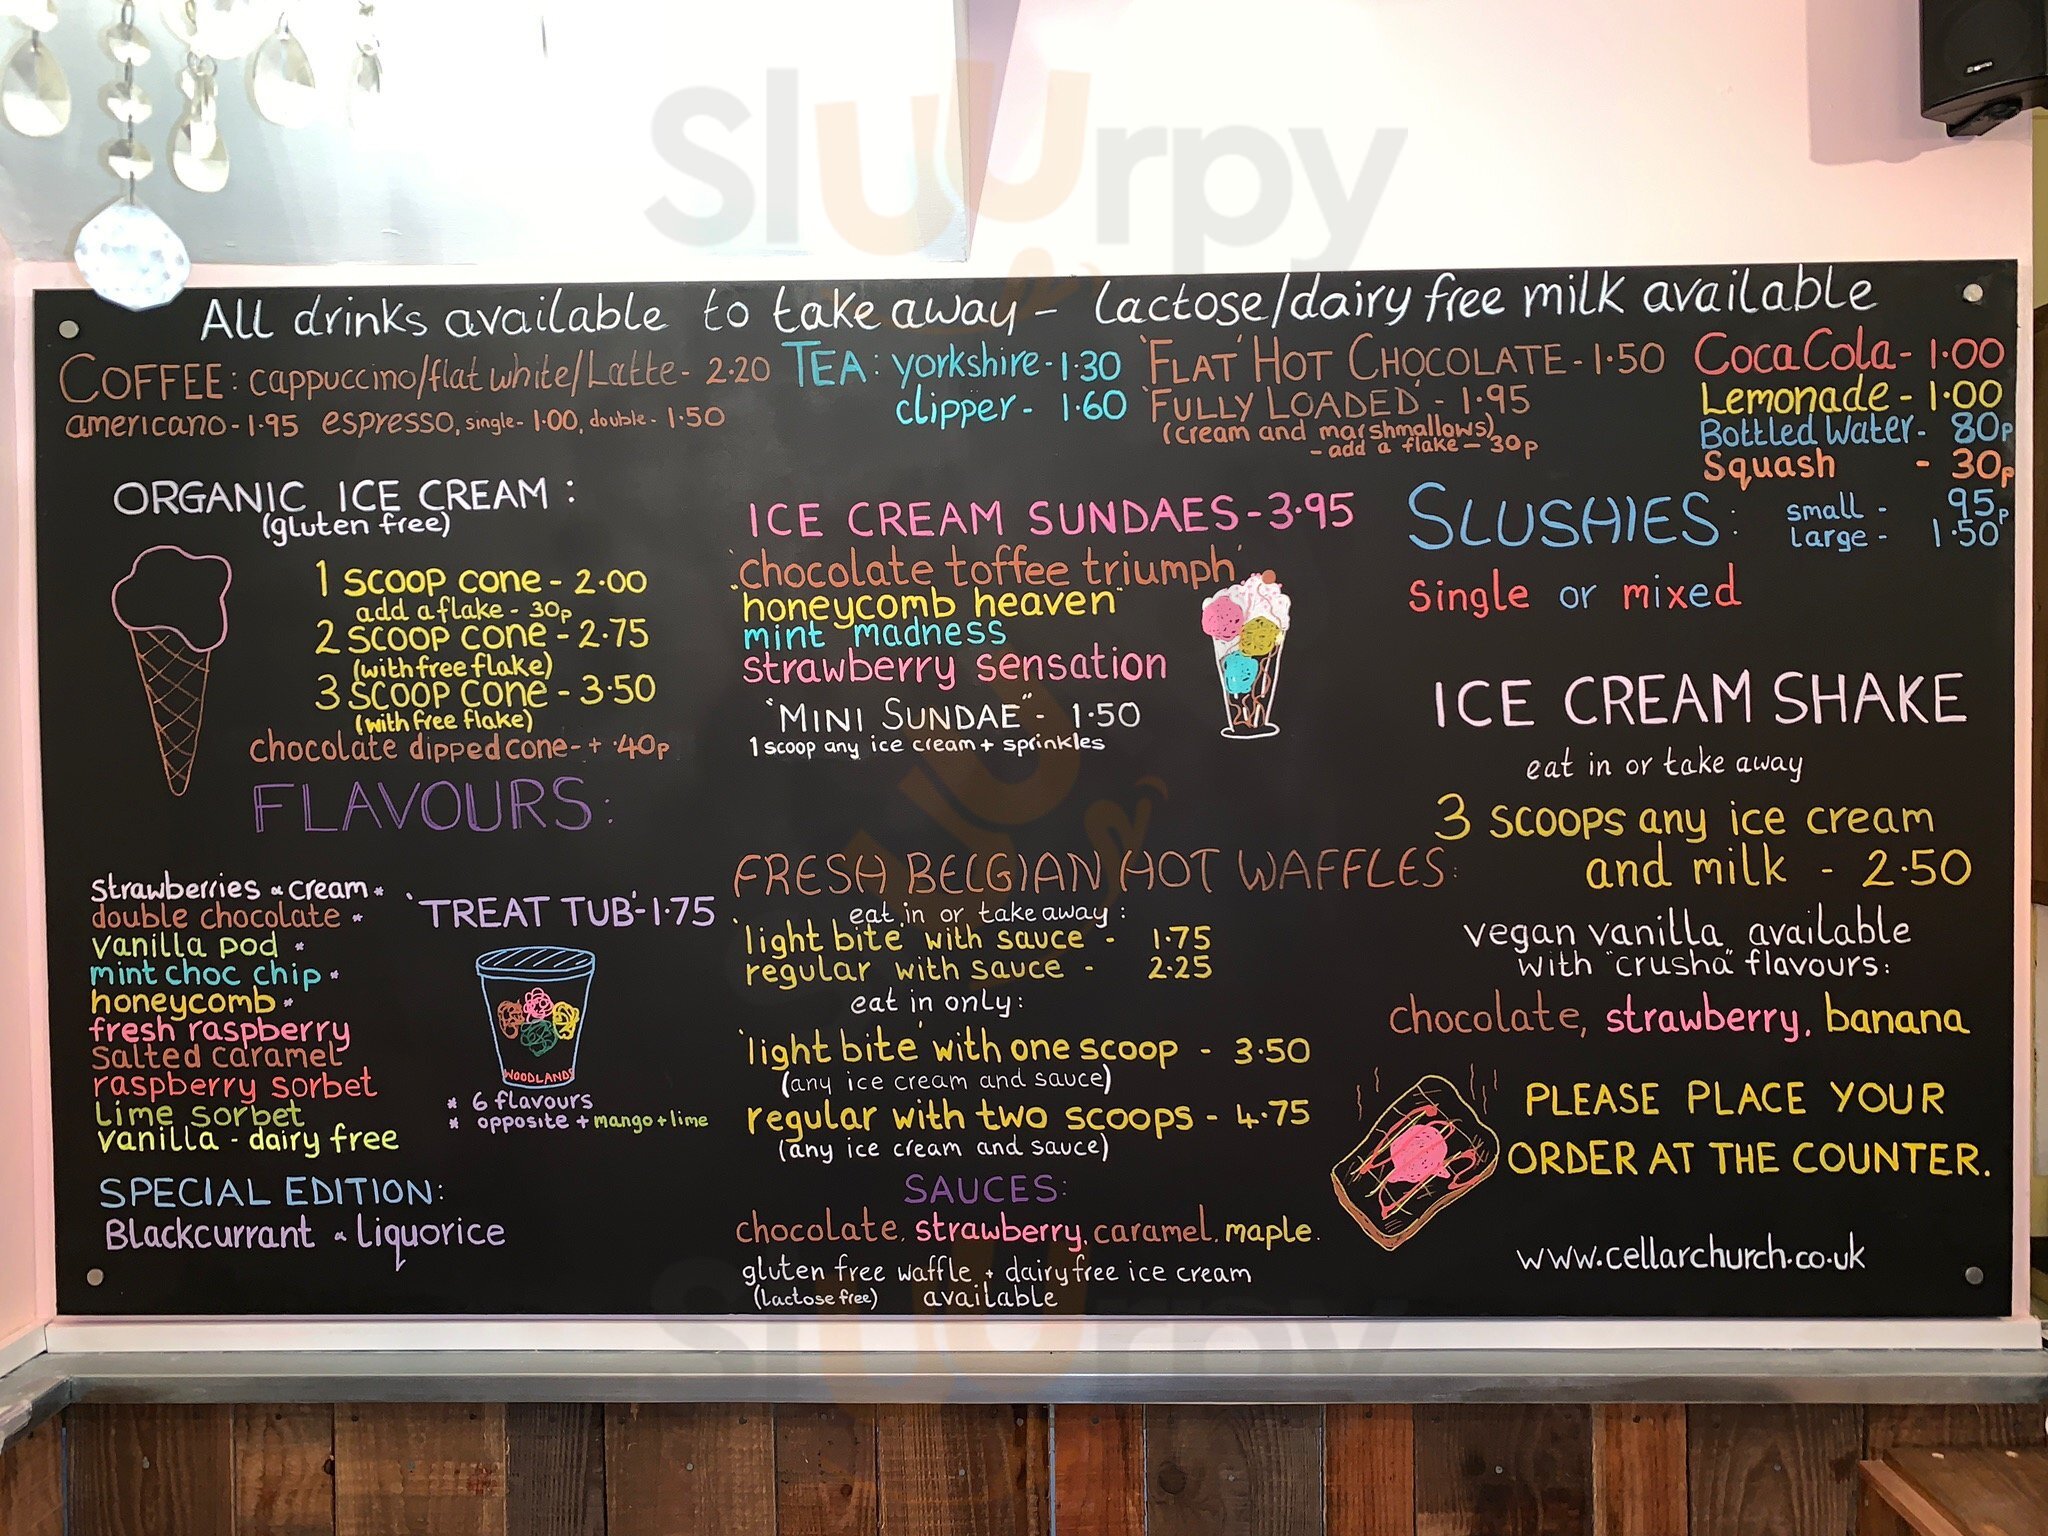 Sluurpy
All drinks available to take away - lactose/dairy free milk available
COFFEE: cappuccino/flat white/Latte- 2.20
americano-1.95 espresso, single-1.00, double-1.50
TEA: yorkshire-1.30
clipper- 1.60
'FLAT' HOT CHOCOLATE-1.50
'FULLY LOADED' - 1.95
(cream and marshmallows)
- add a flake - 30p
Coca Cola- 1.00
Lemonade - 1.00
Bottled Water- 80p
Squash - 30p
ORGANIC ICE CREAM:
(gluten free)
1 scoop cone - 2.00
add a flake - 30p
2 scoop cone - 2.75
(with free flake)
3 scoop cone - 3.50
(with free flake)
chocolate dipped cone- + .40p
FLAVOURS:
strawberries & cream *
double chocolate *
vanilla pod *
mint choc chip *
honeycomb *
fresh raspberry
salted caramel
raspberry sorbet
Lime sorbet
vanilla - dairy free
SPECIAL EDITION:
Blackcurrant & liquorice
'TREAT TUB'-1.75
WOODLANDS
* 6 flavours
* opposite + mango + lime
ICE CREAM SUNDAES-3.95
'chocolate toffee triumph'
"honeycomb heaven"
mint madness
strawberry sensation
"MINI SUNDAE" - 1.50
1 scoop any ice cream + sprinkles
FRESH BELGIAN HOT WAFFLES:
eat in or take away:
'light bite' with sauce - 1.75
regular with sauce - 2.25
eat in only:
'light bite' with one scoop - 3.50
(any ice cream and sauce)
regular with two scoops - 4.75
(any ice cream and sauce)
SAUCES:
chocolate, strawberry, caramel, maple.
gluten free waffle + dairy free ice cream
(lactose free) available
SLUSHIES: small - 95p
large - 1.50
single or mixed
ICE CREAM SHAKE
eat in or take away
3 scoops any ice cream
and milk - 2.50
vegan vanilla available
with "crusha" flavours:
chocolate, strawberry, banana
PLEASE PLACE YOUR
ORDER AT THE COUNTER.
www.cellarchurch.co.uk
Sluurpy